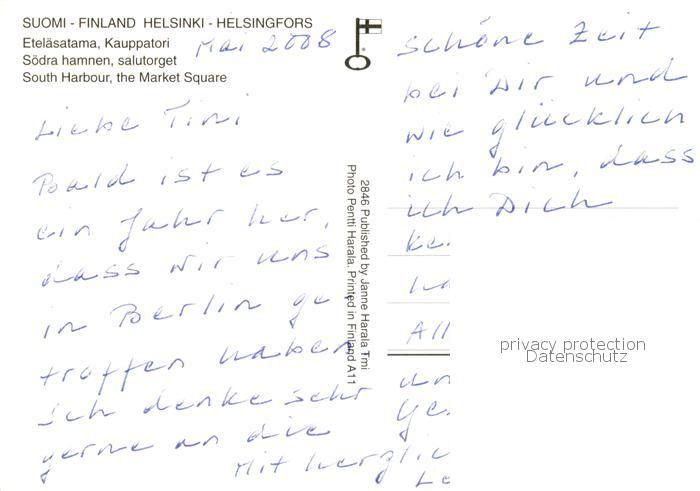 SUOMI - FINLAND HELSINKI - HELSINGFORS
Eteläsatama, Kauppatori
Södra hamnen, salutorget
South Harbour, the Market Square
Mai 2008
Liebe Tini
Bald ist es
ein Jahr her,
dass wir uns
in Berlin ge
troffen haben
Ich denke sehr
gerne an die
schöne Zeit
bei Dir und
wie glücklich
ich bin, dass
ich Dich
ke
All
un
ge
Mit herzlic
2846 Published by Janne Harala Tmi
Photo Pentti Harala. Printed in Finland A11
privacy protection
Datenschutz